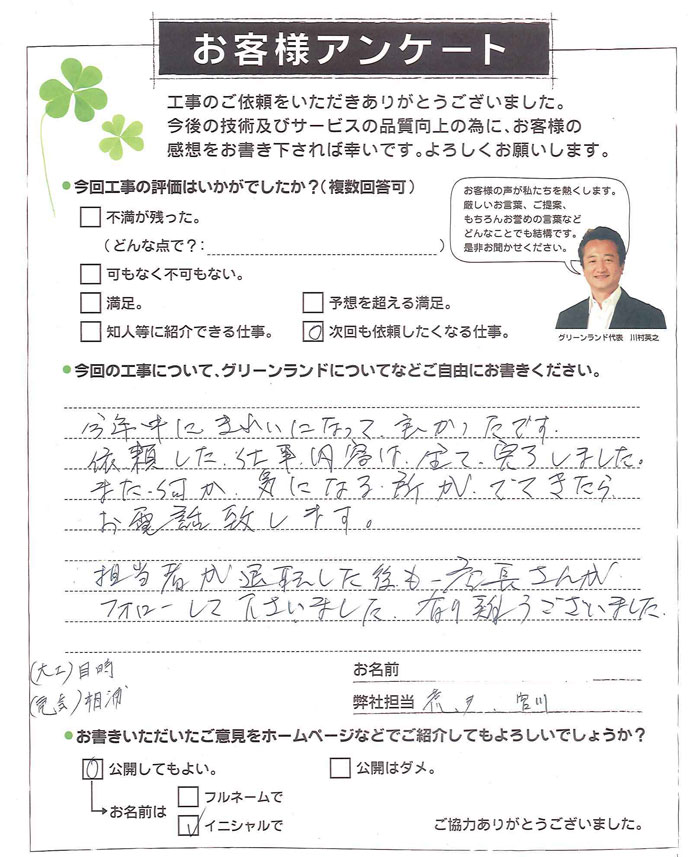 お客様アンケート
工事のご依頼をいただきありがとうございました。
今後の技術及びサービスの品質向上の為に、お客様の
感想をお書き下されば幸いです。よろしくお願いします。
●今回工事の評価はいかがでしたか?(複数回答可)
不満が残った。
(どんな点で?: )
可もなく不可もない。
満足。
予想を超える満足。
知人等に紹介できる仕事。
次回も依頼したくなる仕事。
お客様の声が私たちを熱くします。
厳しいお言葉、ご提案、
もちろんお誉めの言葉など
どんなことでも結構です。
是非お聞かせください。
グリーンランド代表 川村英之
●今回の工事について、グリーンランドについてなどご自由にお書きください。
今年中にきれいになって、良かったです。
依頼した、仕事、内容は、全て、完了しました。
また、何か、気になる所が、でてきたら
お電話致します。
担当者が退転した後も、店長さんが
フォローして下さいました。有り難うございました。
(大工)目時
(電気)相浦
お名前
弊社担当 、宮川
●お書きいただいたご意見をホームページなどでご紹介してもよろしいでしょうか?
公開してもよい。
公開はダメ。
お名前は
フルネームで
イニシャルで
ご協力ありがとうございました。